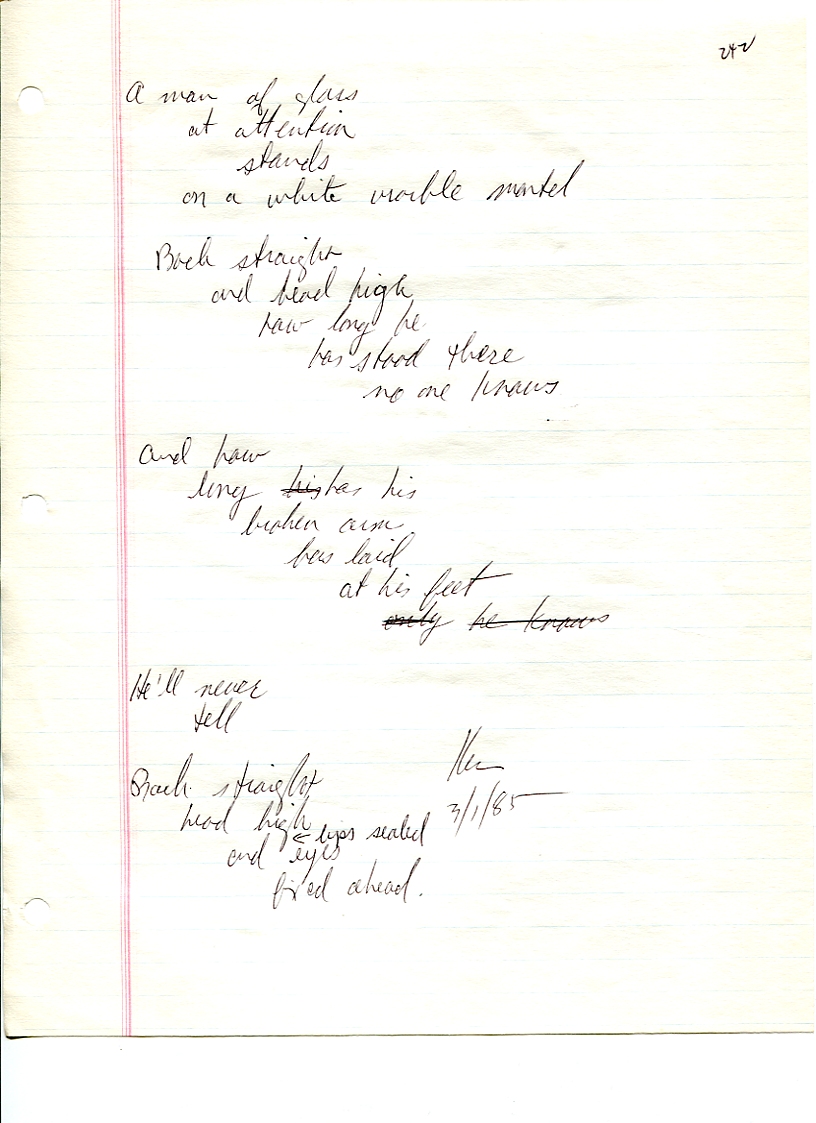 242
A man of glass
at attention
stands
on a white marble mantel
Back straight
and head high
how long he
has stood there
no one knows
and how
long his has his
broken arm
has laid
at his feet
only he knows
He'll never
tell
Back straight
head high
lips sealed
and eyes
fixed ahead.
Ken
3/1/85